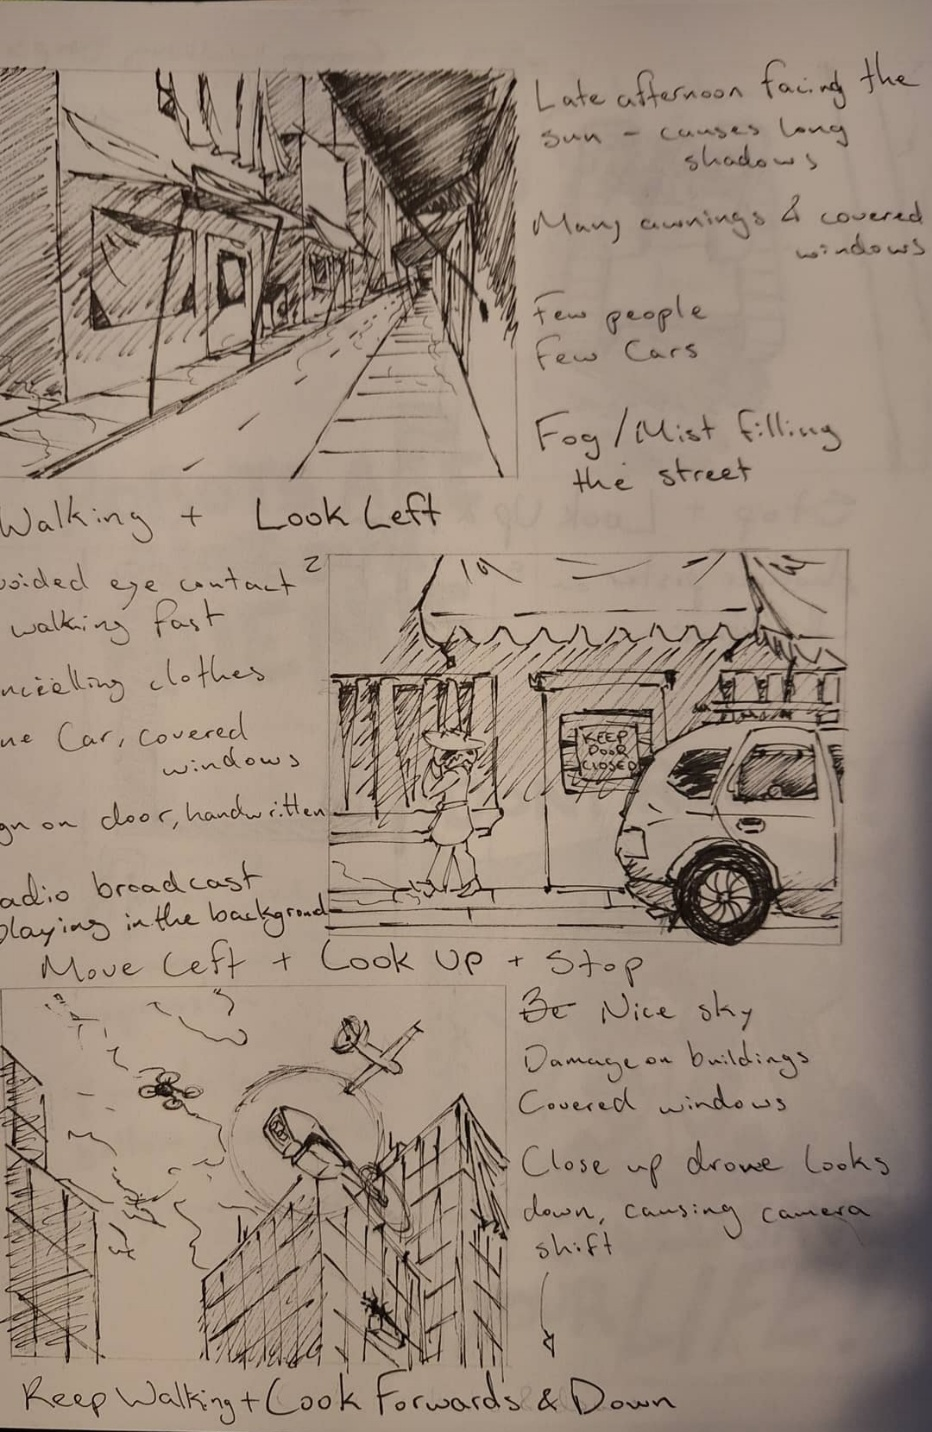 Late afternoon facing the
sun - causes long
shadows
Many awnings & covered
windows
Few people
Few Cars
Fog/Mist filling
the street
Walking + Look Left
voided eye contact
walking fast
2
clothes
ne Car, covered
windows
gn on door, handwritten
adio broadcast
playing in the background
KEEP
DOOR
CLOSED
Move Left + Look Up + Stop
Nice sky
Damage on buildings
Covered windows
Close up drone looks
down, causing camera
shift
Keep Walking + Look Forwards & Down